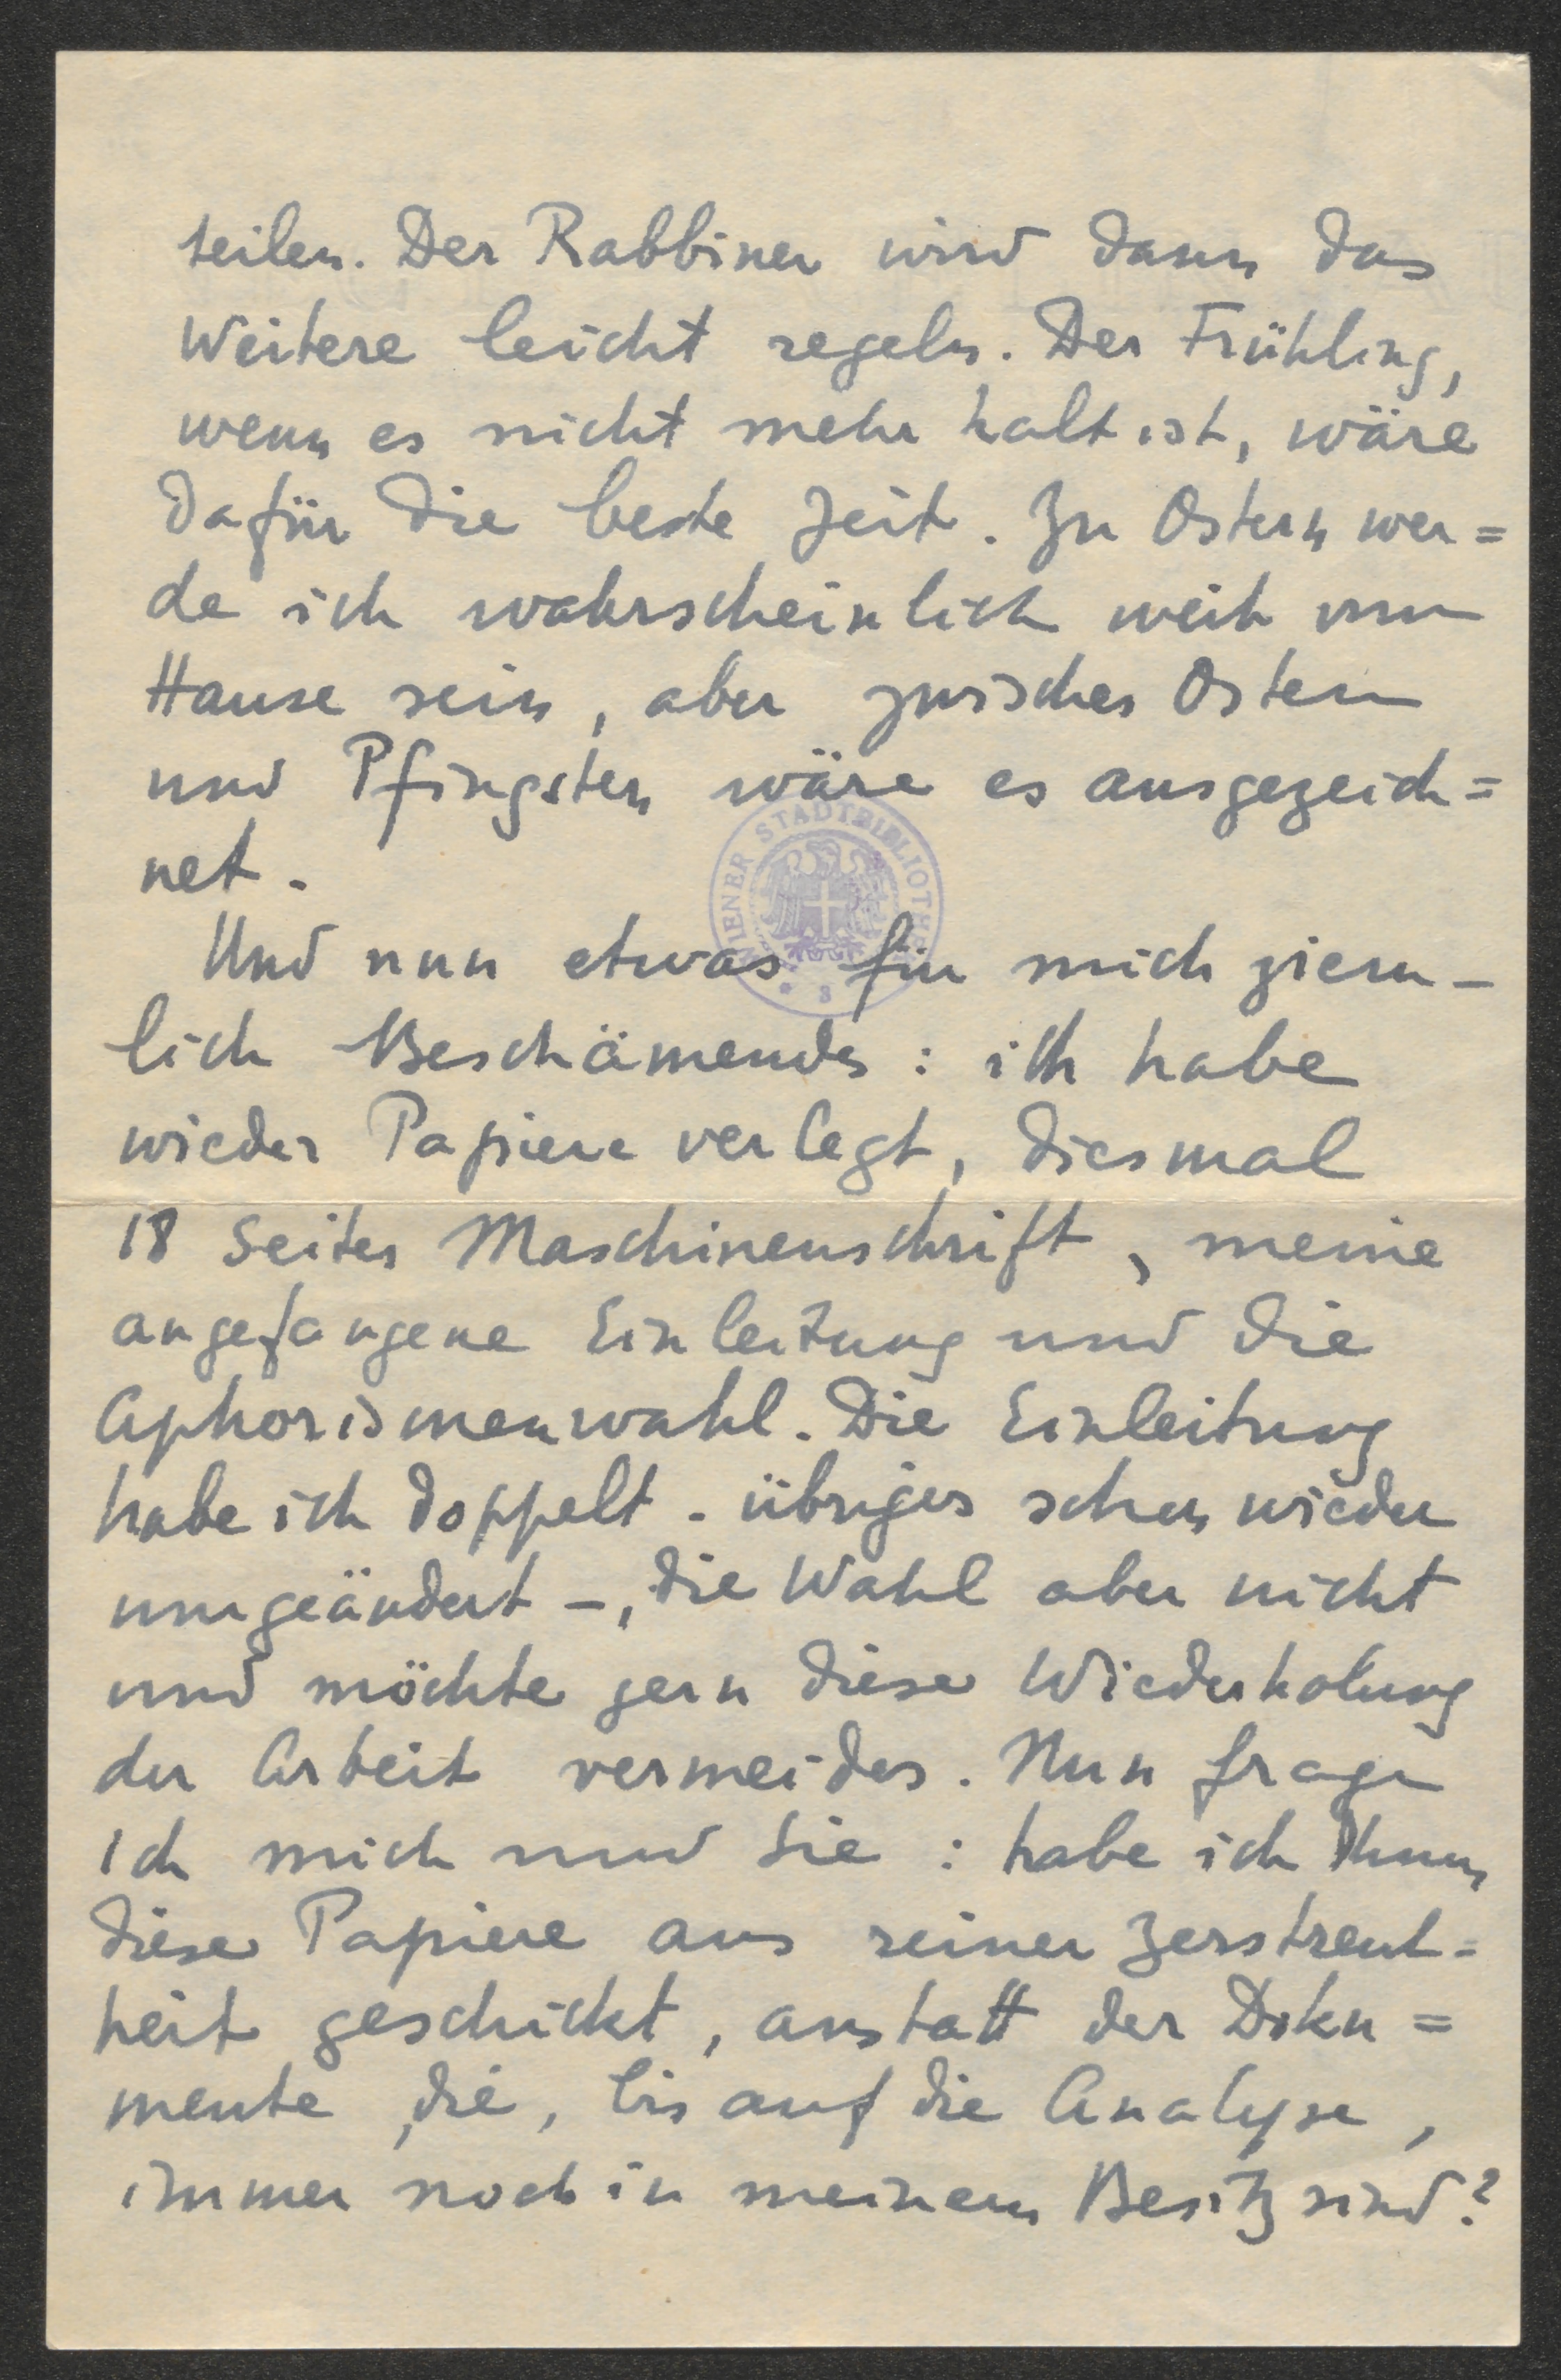 teilen. Der Rabbiner wird dann das
Weitere leicht regeln. Der Frühling,
wenn es nicht mehr kalt ist, wäre
dafür die beste Zeit. Zu Ostern wer=
de ich wahrscheinlich weit vom
Hause sein, aber zwischen Ostern
und Pfingsten wäre es ausgezeich=
net.
WIENER STADTBIBLIOTHEK
Und nun etwas für mich ziem-
lich Beschämendes: ich habe
wieder Papiere verlegt, diesmal
18 Seiten Maschinenschrift, meine
angefangene Einleitung und die
Aphorismenwahl. Die Einleitung
habe ich doppelt - übrigens schon wieder
umgeändert -, die Wahl aber nicht
und möchte gern diese Wiederholung
der Arbeit vermeiden. Nun frage
ich mich und Sie: habe ich Ihnen
diese Papiere aus reiner Zerstreut=
heit geschickt, anstatt der Doku=
mente, die, bis auf die Analyse,
immer noch in meinem Besitz sind?